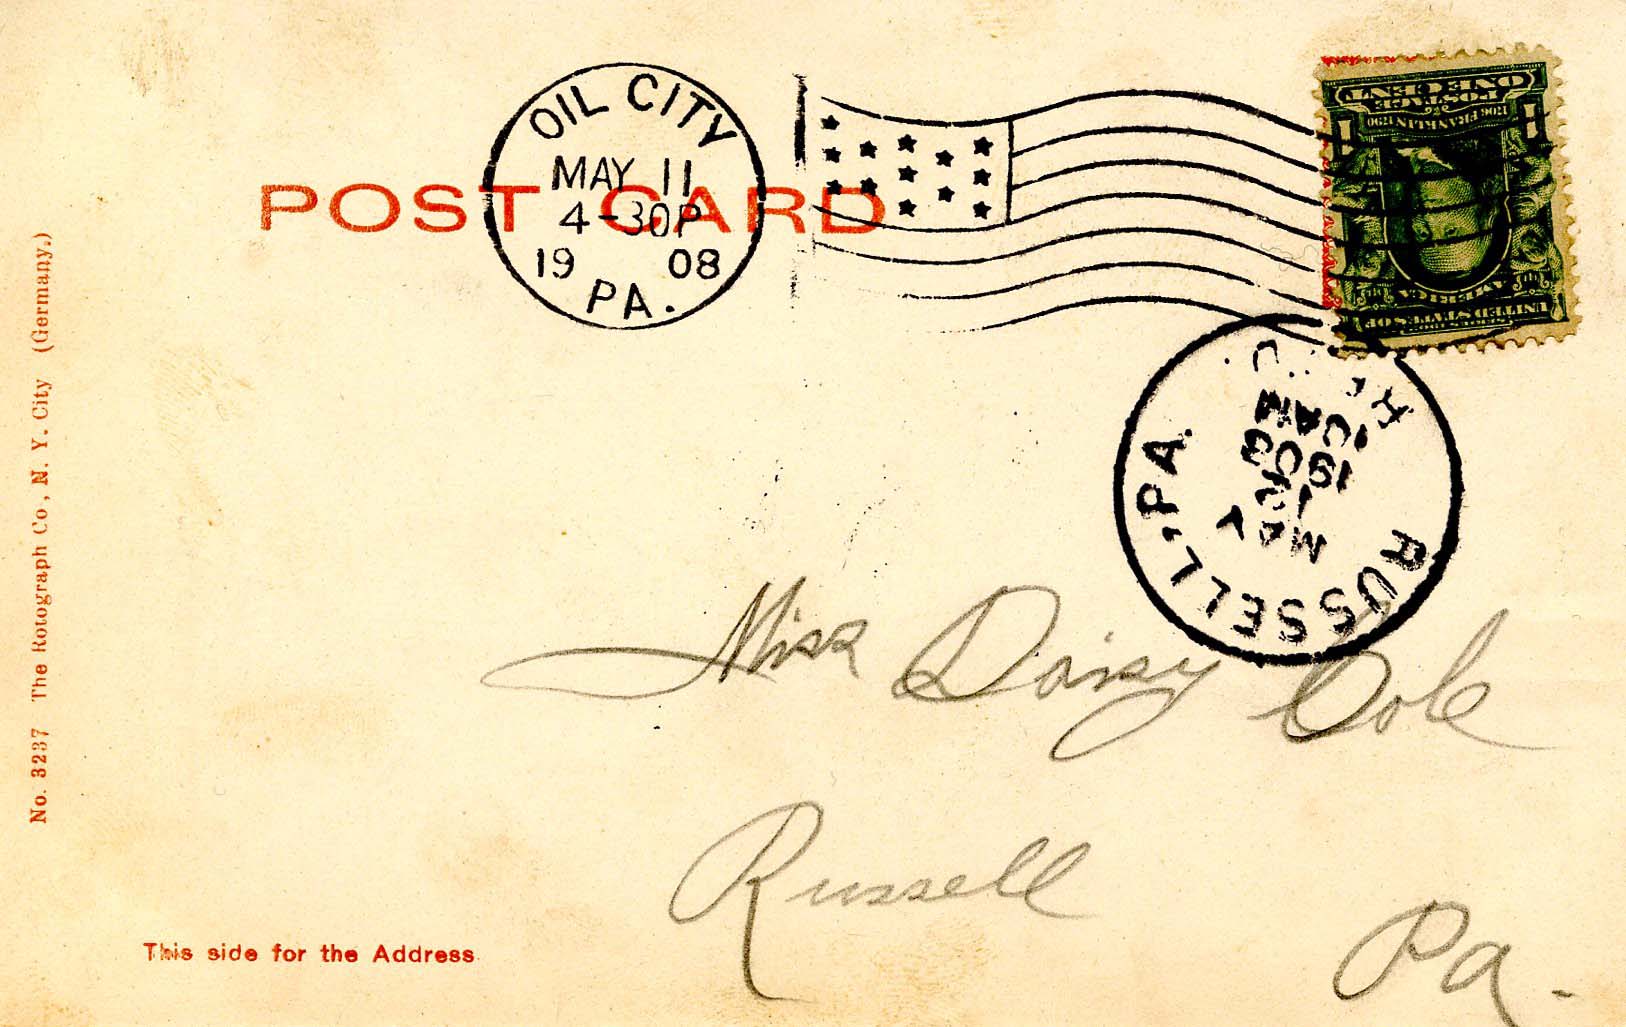 OIL CITY
MAY 11
4-30P
19 08
PA.
POST CARD
ONE CENT
POSTAGE
1706 FRANKLIN 1790
1 1
UNITED STATES OF
AMERICA
RUSSELL, PA.
MAY
10AM
REC'D.
Miss Daisy Cole
Russell
Pa.
This side for the Address
No. 3237 The Rotograph Co., N. Y. City (Germany.)